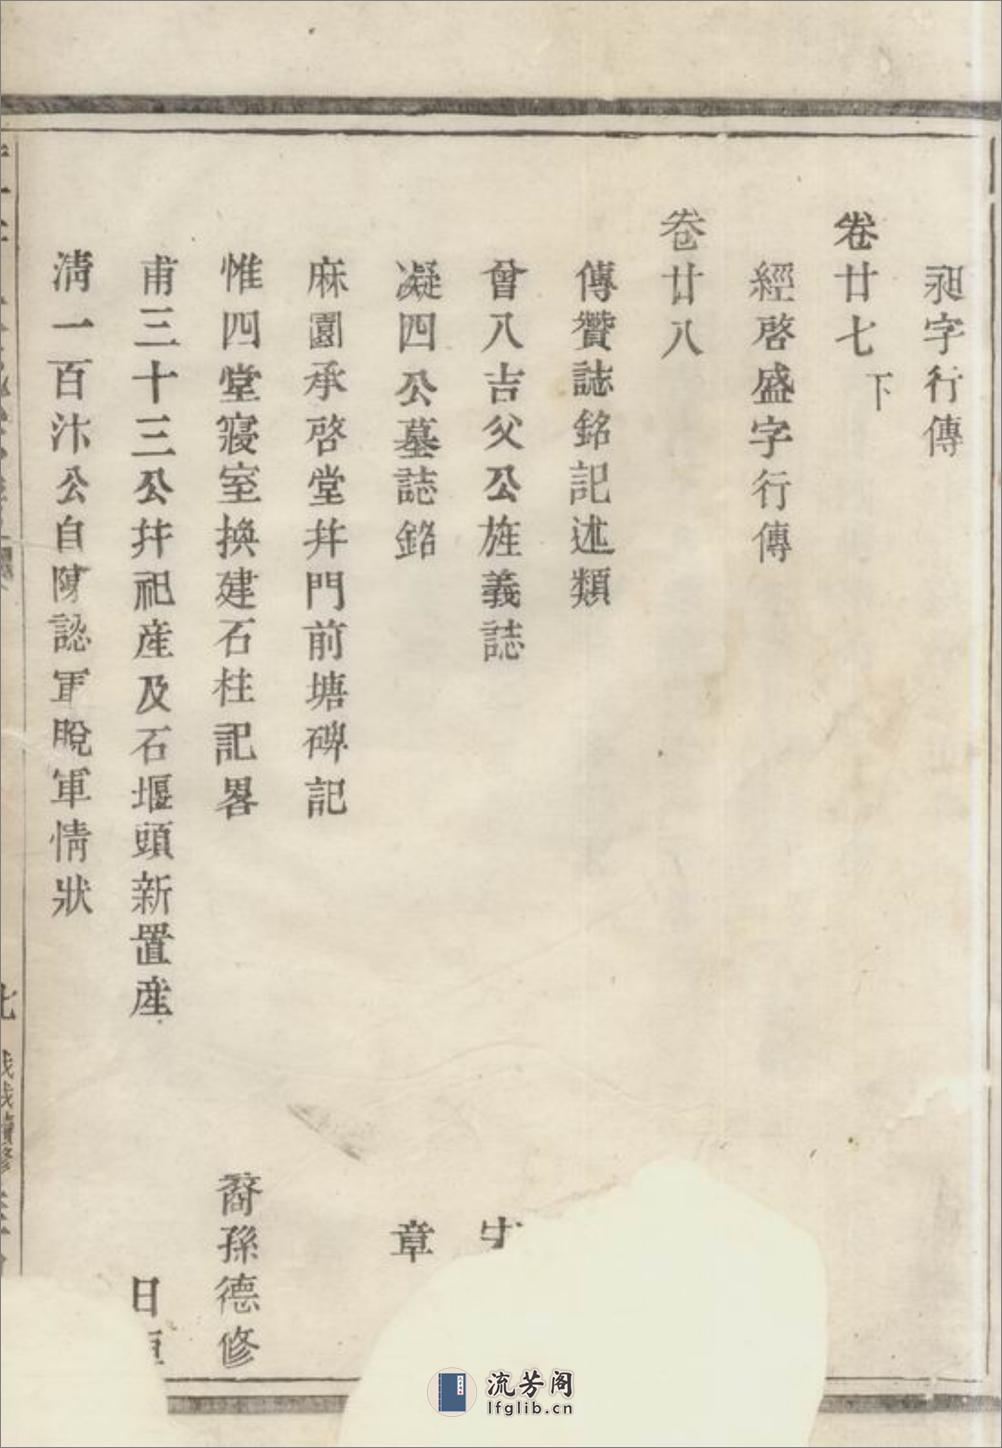 昶字行傳
卷廿七下
經啓盛字行傳
卷廿八
傳贊誌銘記述類
曾八吉父公旌義誌
凝四公墓誌銘 章
麻園承啓堂并門前塘碑記
惟四堂寢室換建石柱記畧 裔孫德修
甫三十三公并祀産及石堰頭新置産
清一百汴公自陳認軍脫軍情狀
流芳阁
lfglib.cn